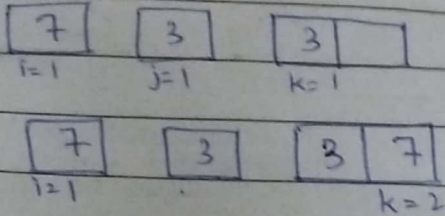 7 3 3
i=1 j=1 k=1
7 3 3 7
i=1 k=2